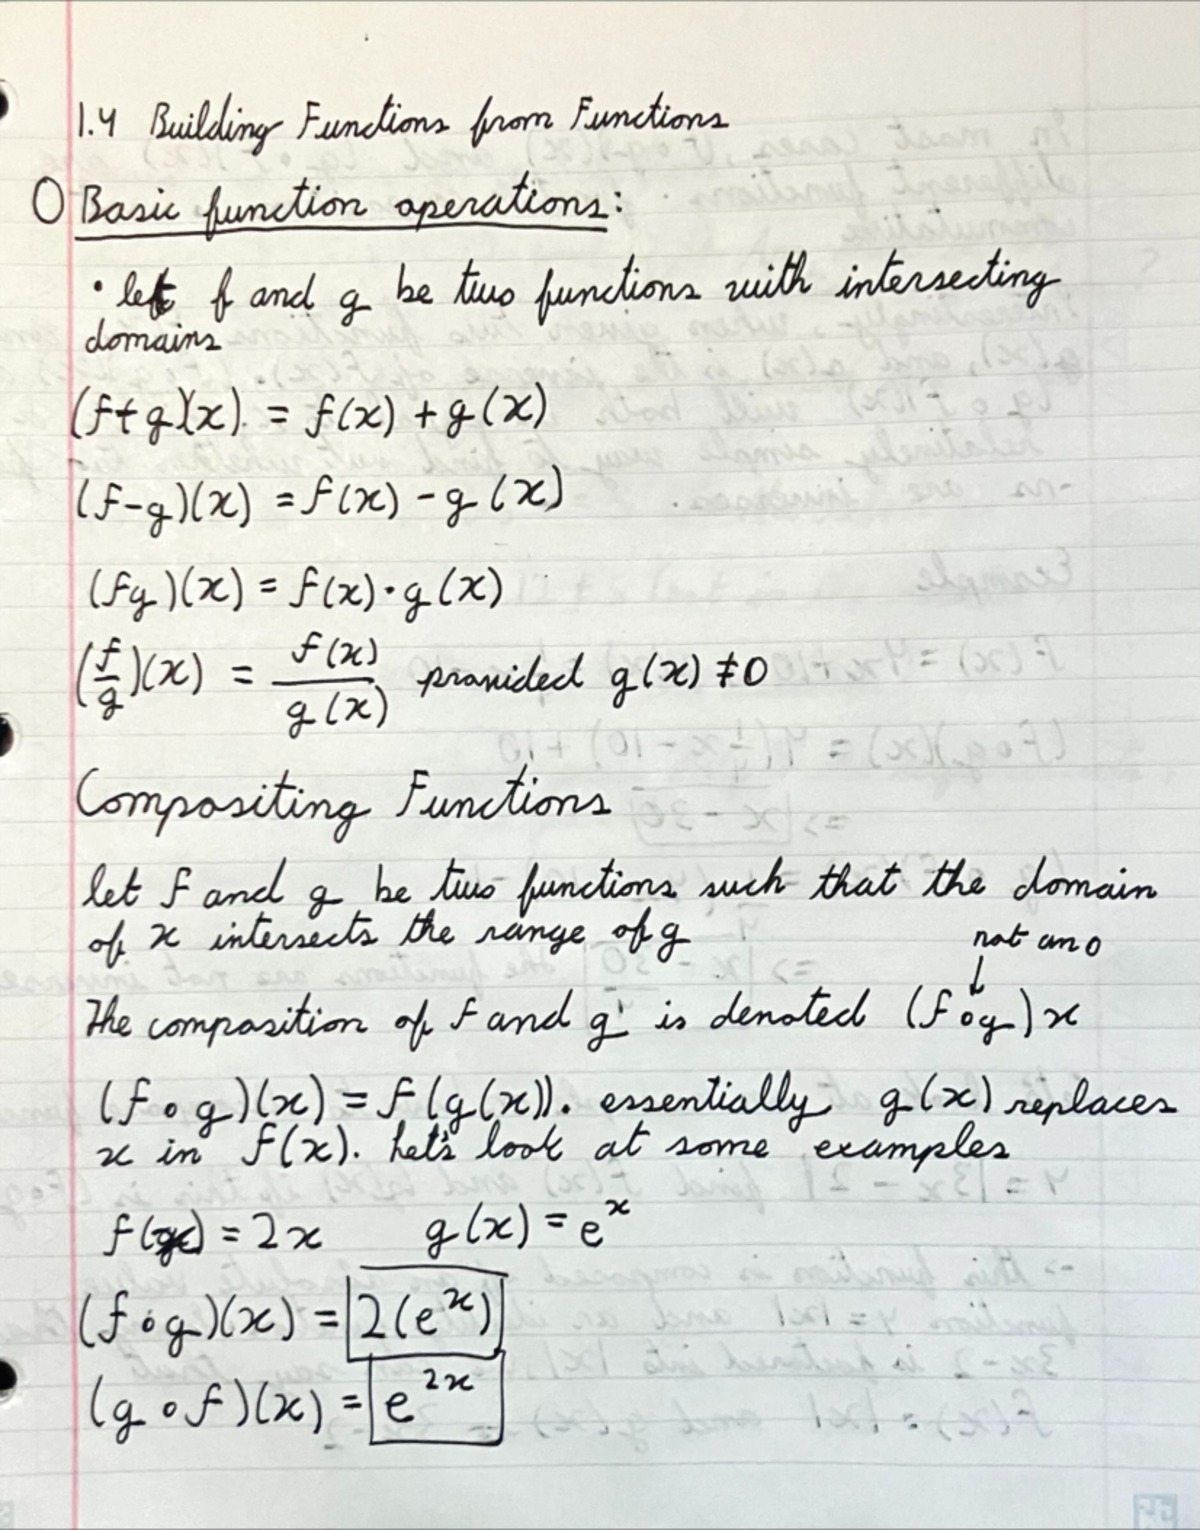 1.4 Building Functions from Functions
Basic function operations:
• let f and g be two functions with intersecting
domains
(f+g)(x) = f(x) + g(x)
(f-g)(x) = f(x) - g(x)
(fg)(x) = f(x)·g(x)
(f/g)(x) = f(x)/g(x) provided g(x) ≠ 0
Compositing Functions
let f and g be two functions such that the domain
of x intersects the range of g
not an o
↓
The composition of f and g is denoted (f∘g)x
(f∘g)(x) = f(g(x)). essentially g(x) replaces
x in f(x). Let's look at some examples
f(x) = 2x g(x) = e^x
(f∘g)(x) = 2(e^x)
(g∘f)(x) = e^2x